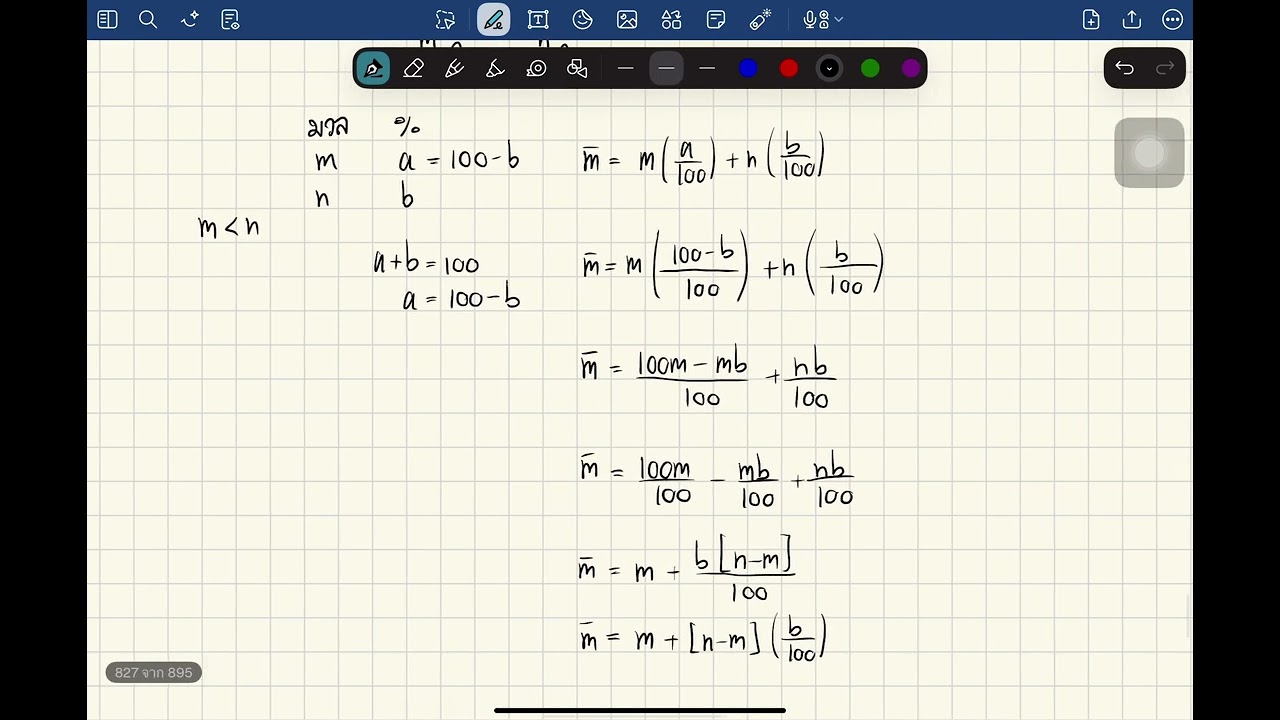 มวล %
m a = 100-b
n b
m < n
a+b = 100
a = 100-b
m̄ = m(a/100) + n(b/100)
m̄ = m((100-b)/100) + n(b/100)
m̄ = (100m - mb)/100 + nb/100
m̄ = 100m/100 - mb/100 + nb/100
m̄ = m + b[n-m]/100
m̄ = m + [n-m](b/100)
827 จาก 895